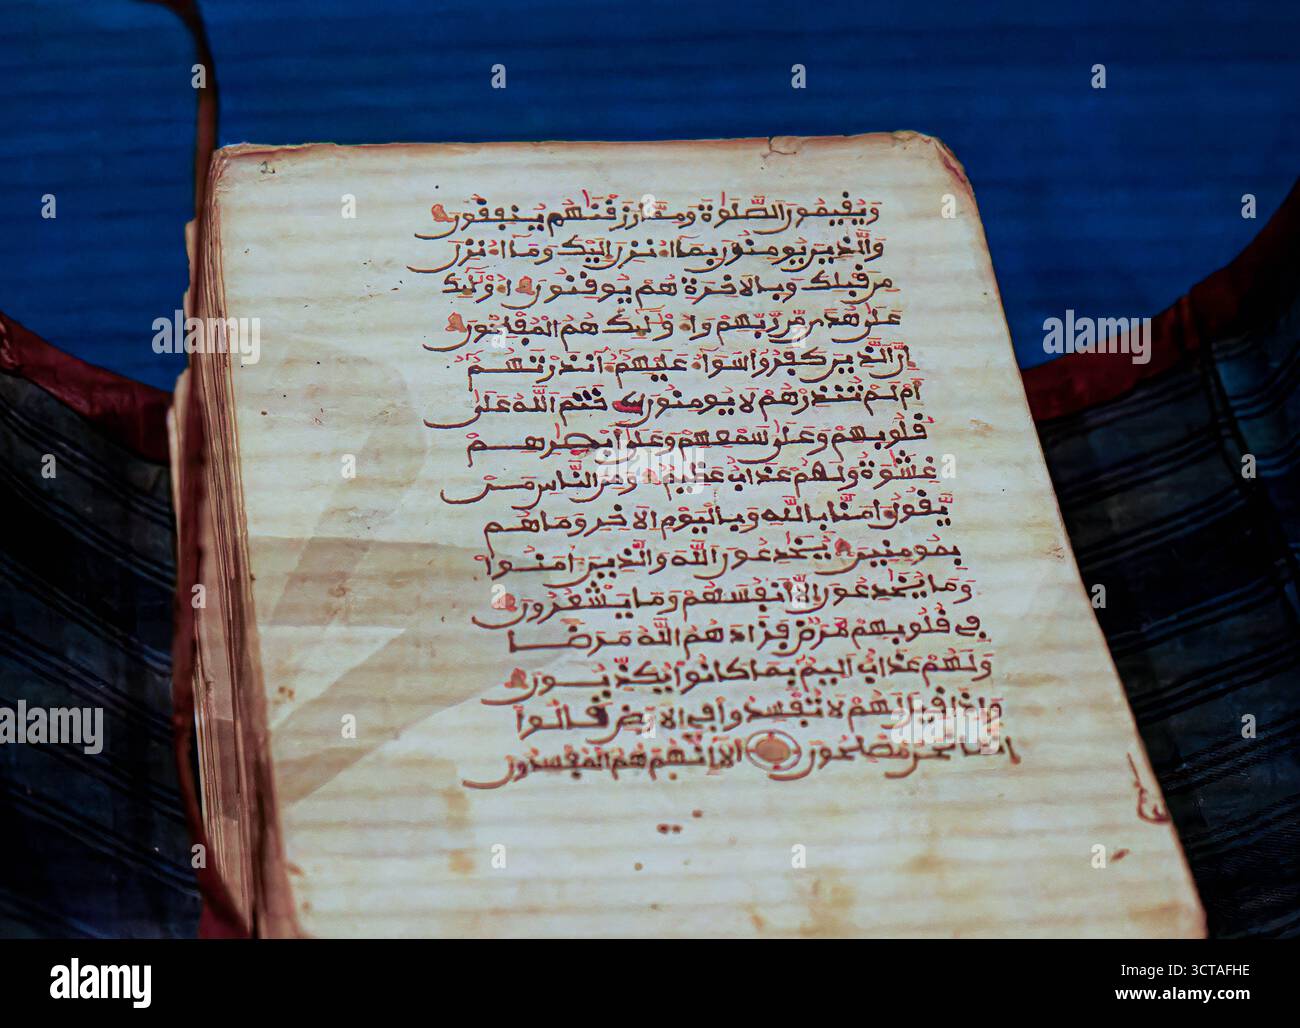 وَيُقِيمُونَ الصَّلَوٰةَ وَمِمَّا رَزَقْنَٰهُمْ يُنفِقُونَ
وَالَّذِينَ يُومِنُونَ بِمَا أُنزِلَ إِلَيْكَ وَمَا أُنزِلَ
مِن قَبْلِكَ وَبِالَاخِرَةِ هُمْ يُوقِنُونَ أُوْلَٰئِكَ
عَلَىٰ هُدًى مِّن رَّبِّهِمْ وَأُوْلَٰئِكَ هُمُ الْمُفْلِحُونَ
إِنَّ الَّذِينَ كَفَرُوا سَوَآءٌ عَلَيْهِمُ ءَآنذَرْتَهُمُ
أَمْ لَمْ تُنذِرْهُمْ لَا يُومِنُونَ خَتَمَ اللَّهُ عَلَىٰ
قُلُوبِهِمْ وَعَلَىٰ سَمْعِهِمْ وَعَلَىٰ أَبْصَٰرِهِمْ
غِشَٰوَةٌ وَلَهُمْ عَذَابٌ عَظِيمٌ وَمِنَ النَّاسِ مَنْ
يَّقُولُ ءَامَنَّا بِاللَّهِ وَبِالْيَوْمِ الَاخِرِ وَمَا هُم
بِمُومِنِينَ يُخَٰدِعُونَ اللَّهَ وَالَّذِينَ ءَامَنُوا
وَمَا يُخَٰدِعُونَ إِلَّا أَنفُسَهُمْ وَمَا يَشْعُرُونَ
فِي قُلُوبِهِم مَّرَضٌ فَزَادَهُمُ اللَّهُ مَرَضًا
وَلَهُمْ عَذَابٌ أَلِيمٌ بِمَا كَانُوا يُكَذِّبُونَ
وَإِذَا قِيلَ لَهُمْ لَا تُفْسِدُوا فِي الَارْضِ قَالُوا
إِنَّمَا نَحْنُ مُصْلِحُونَ أَلَا إِنَّهُمْ هُمُ الْمُفْسِدُونَ
alamy
Image ID: 3CTAFHE
www.alamy.com